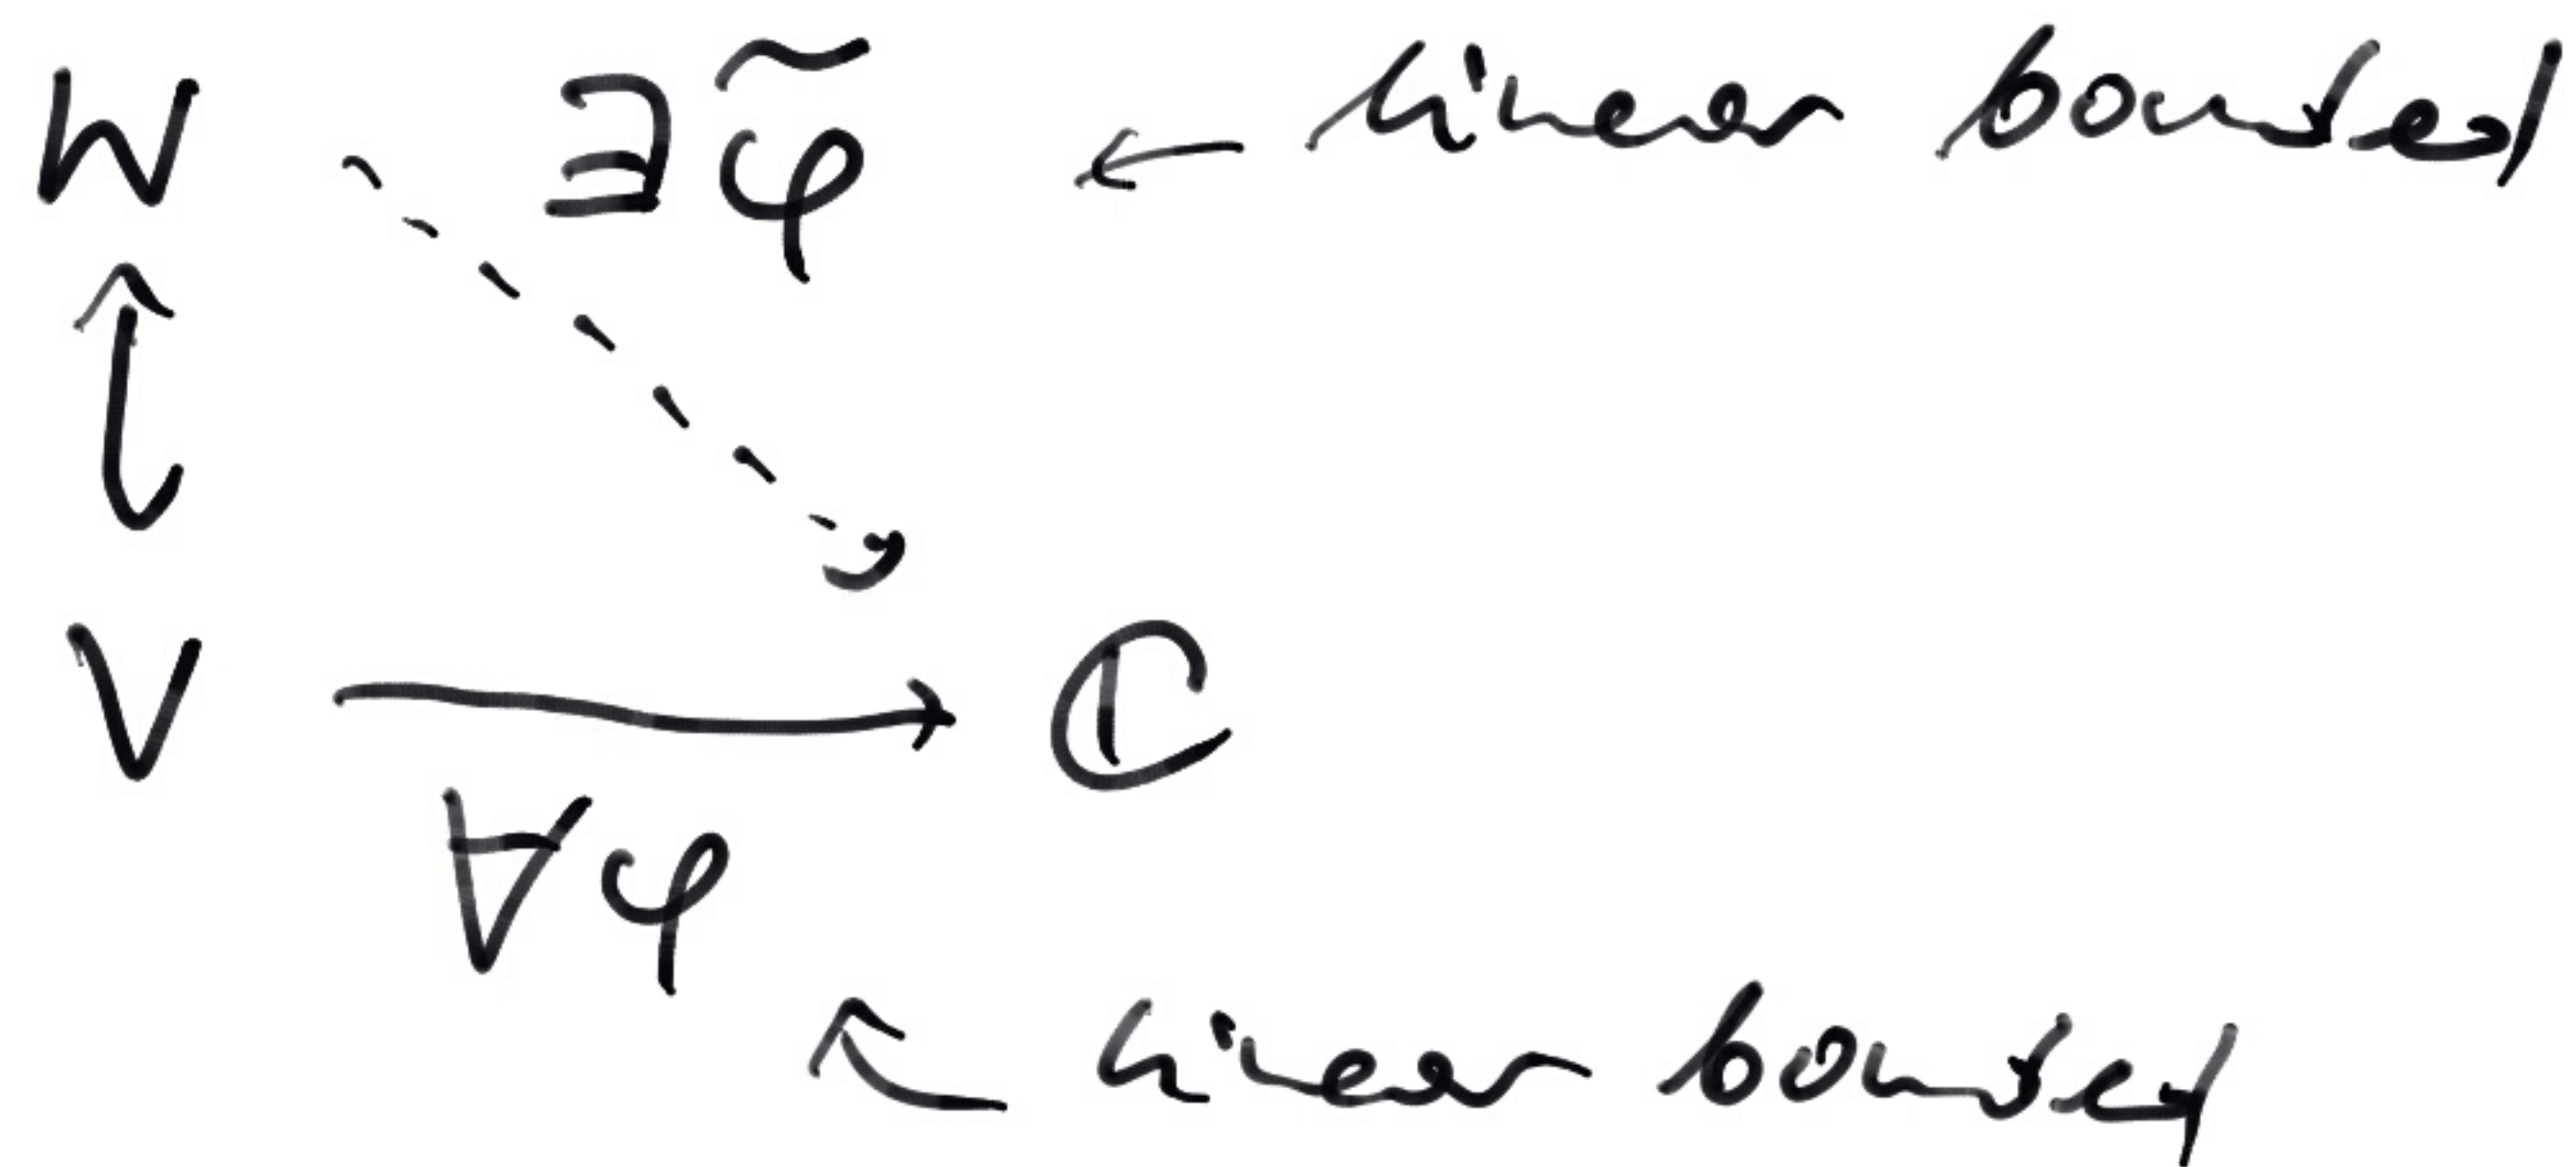 W ∃φ̃ ← linear bounded
V → ℂ
∀φ
linear bounded